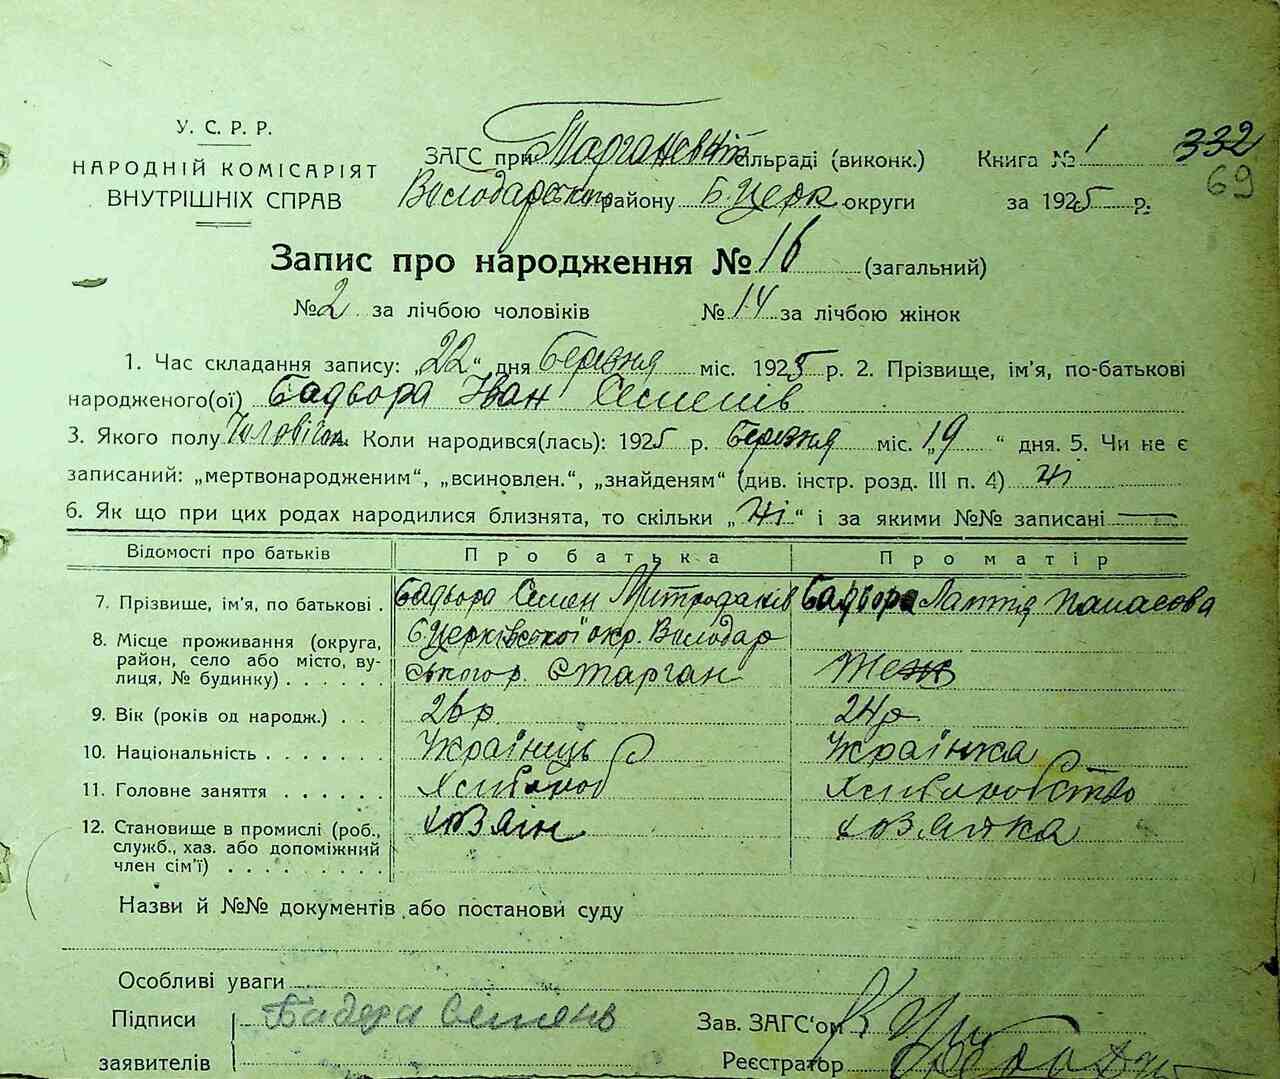 332
69
У. С. Р. Р.
НАРОДНІЙ КОМІСАРІЯТ
ВНУТРІШНІХ СПРАВ
ЗАГС при Тарганській сільраді (виконк.) Книга № 1
Володарського району Б. Церк округи за 1925 р.
Запис про народження № 16 (загальний)
№ 2 за лічбою чоловіків № 14 за лічбою жінок
1. Час складання запису: „22“ дня Березня міс. 1925 р. 2. Прізвище, ім'я, по-батькові
народженого(ої) Бадьора Іван Семенів
3. Якого полу Коли народився(лась): 1925 р. Березня міс. „19“ дня. 5. Чи не є
записаний: „мертвонародженим“, „всиновлен.“, „знайденям“ (див. інстр. розд. III п. 4) ні
6. Як що при цих родах народилися близнята, то скільки „ні“ і за якими №№ записані —
Відомості про батьків Про батька Про матір
7. Прізвище, ім'я, по батькові . Бадьора Семен Митрофанів Бадьора Панасова
8. Місце проживання (округа, район, село або місто, вулиця, № будинку) . . . . . . Б Церківської окр. Володар
ського р. С Тарган теж
9. Вік (років од народж.) . . 26 р. 24 р
10. Національність . . . . . . . Українець Українка
11. Головне заняття . . . . . . Хлібороб Хліборобство
12. Становище в промислі (роб., служб., хаз. або допоміжний член сім'ї) . . . . . . . . хозяін хозяйка
Назви й №№ документів або постанови суду
Особливі уваги
Підписи Бадера Семен Зав. ЗАГС'ом
заявителів Реєстратор